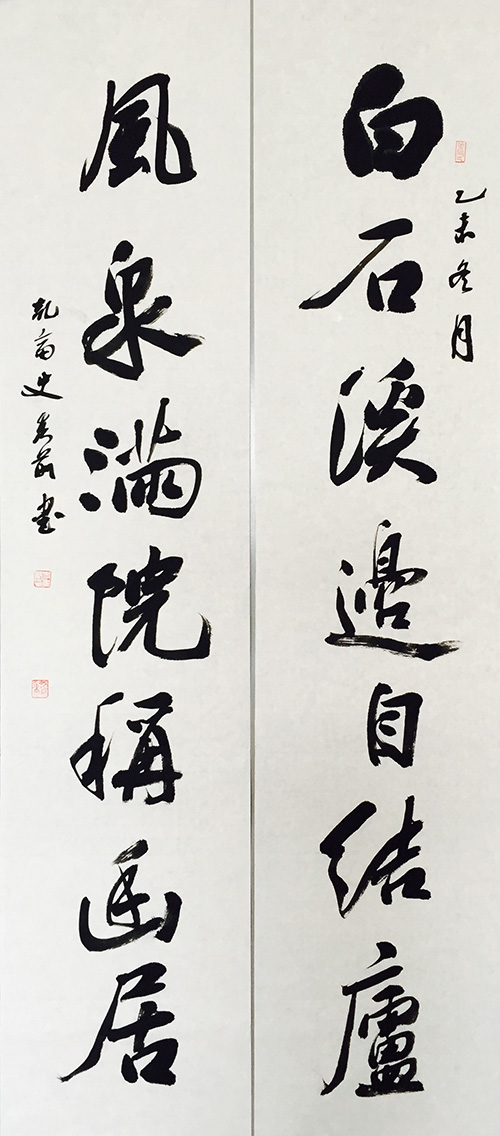 乙未冬月
白石溪邊自結廬
風泉滿院稱幽居
史 書